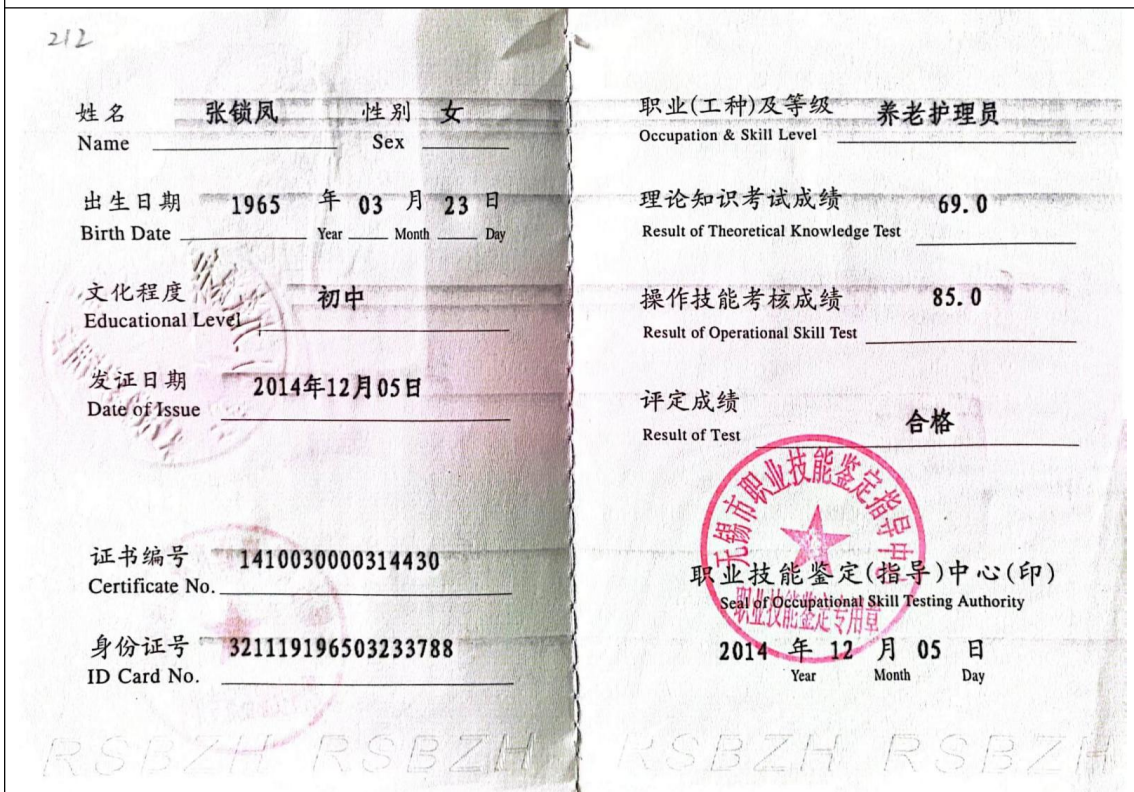 212
姓名 张锁凤 性别 女
Name Sex
出生日期 1965 年 03 月 23 日
Birth Date Year Month Day
文化程度 初中
Educational Level
发证日期 2014年12月05日
Date of Issue
证书编号 1410030000314430
Certificate No.
身份证号 321119196503233788
ID Card No.
职业(工种)及等级 养老护理员
Occupation & Skill Level
理论知识考试成绩 69.0
Result of Theoretical Knowledge Test
操作技能考核成绩 85.0
Result of Operational Skill Test
评定成绩 合格
Result of Test
无锡市职业技能鉴定指导中心
职业技能鉴定(指导)中心(印)
Seal of Occupational Skill Testing Authority
职业技能鉴定专用章
2014 年 12 月 05 日
Year Month Day
RSBZH RSBZH RSBZH RSBZH